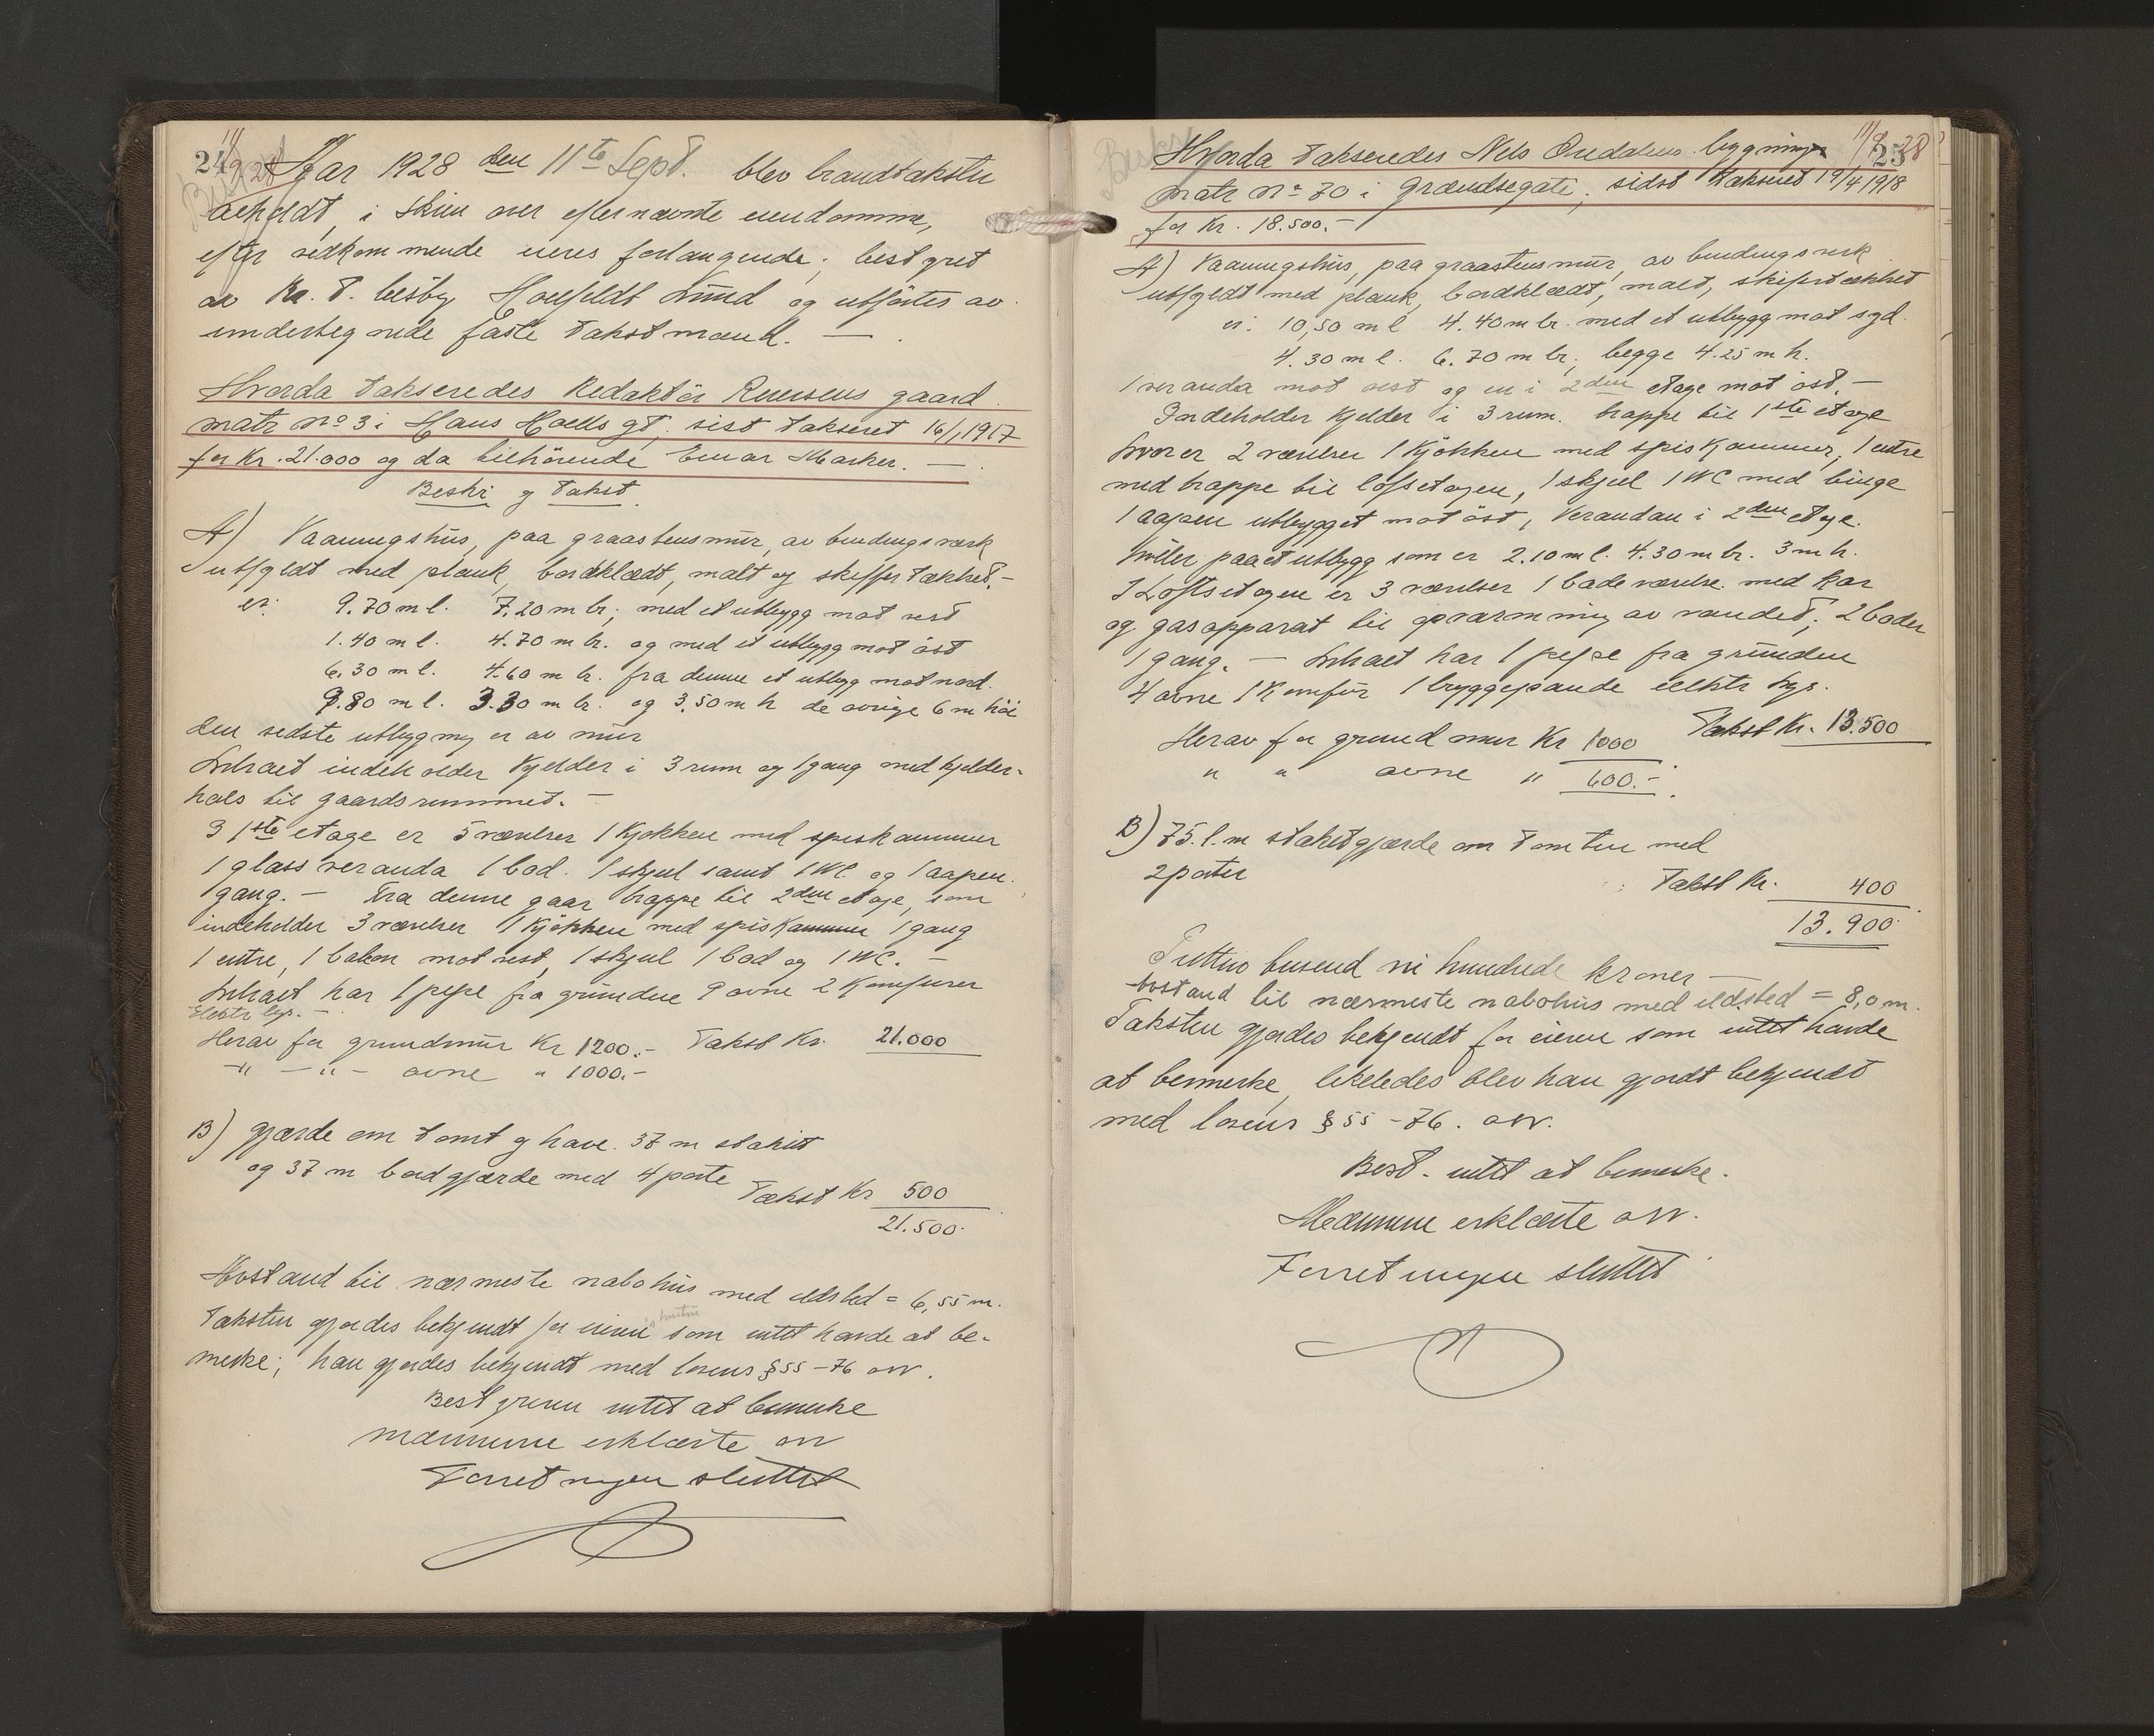 24
11/9 28
Aar 1928 den 11te Sept. blev brandtakster
avholdt i Skien over efternævnte eiendomme,
efter vedkommende eieres forlangende; bestyret
av Kr. T. Houfeldt Lund og utförtes av
undertegnede faste takstmænd. —
Hvorda takseredes Redaktör Reiersens gaard
matr No 3 i Hans Hoells gt; sist takseret 16/1 1917
for Kr. 21.000 og da tilhörende Einar Marker. —
Beskr og Takst.
A) Vaaningshus, paa graastensmur, av bindingsværk
utfyldt med plank, bordklædt, malt og skiffertækket. -
er: 9.70 m l. 7.20 m br; med et utbygg mot vest
1.40 m l. 4.70 m br. og med et utbygg mot öst
6.30 m l. 4.60 m br. fra denne et utbygg mot nord.
9.80 m l. 3.30 m br. og 3.50 m h de övrige 6 m höi
den sidste utbygning er av mur
Anlæt indeholder Kjelder i 3 rum og 1 gang med kjelder-
hals til gaardsrummet. -
I 1ste etage er 5 værelser 1 Kjökken med spiskammer
1 glassveranda 1 bod. 1 skjul samt 1 WC og 1 aapen
gang. - Fra denne gaar trappe til 2den etage, som
indeholder 3 værelser 1 Kjökken med spiskammer 1 gang
1 entre, 1 balkon mot vest, 1 skjul 1 bod og 1 WC. -
har 1 pipe fra grunden 9 ovne 2 Komfurer
Elektr lys. -
Herav for grundmur Kr 1200.- Takst Kr. 21.000
-"- -"- ovne " 1000.-
B) gjærde om tomt og have. 37 m stakit
og 37 m bordgjærde med 4 porte
Takst Kr 500
21.500.
Avstand til nærmeste nabohus med ildsted = 6,55 m.
Taksten gjordes bekjendt for eieren hustru som intet havde at be-
merke; han gjordes bekjendt med lovens § 55 - 76 osv.
Bestyreren intet at bemerke
mændene erklærte osv
Forretningen sluttet
25
11/9 28
Hvorda takseredes Nils Ouedalens bygninger
matr No 70 i Grændsegate; sidst takseret 19/4 1918
for Kr. 18.500.-
A) Vaaningshus, paa graastensmur, av bindingsverk
utfyldt med plank, bordklædt, malt, skifertækket
er: 10,50 m l 4.40 m br. med et utbygg mot syd.
4.30 m l. 6.70 m br; begge 4.25 m h.
1 veranda mot vest og en i 2den etage mot öst. -
Indeholder Kjelder i 3 rum. trappe til 1ste etage
hvor er 2 værelser 1 Kjökken med spiskammer, 1 entre
med trappe til loftsetagen, 1 skjul 1 WC med binge
1 aapen utbygget mot öst, Verandan i 2den etage.
hviler paa et utbygg som er 2.10 m l. 4.30 m br. 3 m h.
I Loftsetagen er 3 værelser 1 badeværelse med kar
og gasapparat til opvarmning av vandet; 2 boder
1 gang. - har 1 pipe fra grunden
4 ovne 1 Komfur 1 bryggepande elektr lys.
Takst Kr. 13.500
Herav for grundmur Kr 1000
" " ovne " 600.-
B) 75. l. m stakitgjærde om tomten med
2 porter
Takst Kr. 400
13.900
Tretten tusend ni hundrede kroner —
Avstand til nærmeste nabohus med ildsted = 8,0 m.
Taksten gjordes bekjendt for eieren som intet havde
at bemerke, likeledes blev han gjordt bekjendt
med lovens § 55 - 76. osv.
Best. intet at bemerke.
Mændene erklærte osv.
Forretningen sluttet